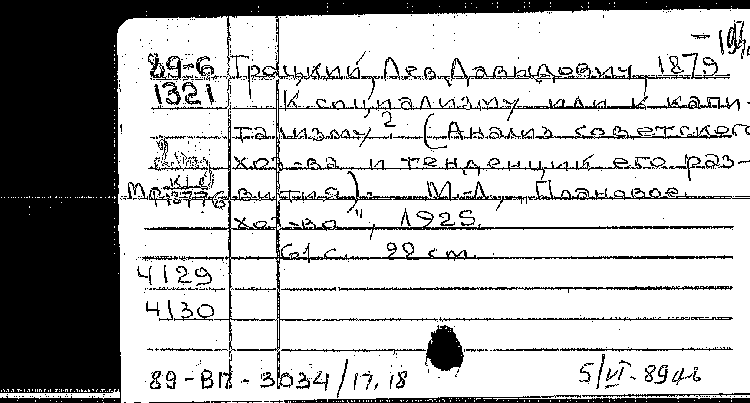 89-6 Троцкий, Лев Давыдович, 1879
1321 К социализму или к капи-
тализму? (Анализ советского
хоз-ва и тенденций его раз-
вития). М.-Л., "Плановое
хоз-во", 1925.
61 с. 22 cm.
4129
4130
89-ВП-3034/17,18 5/VI-89